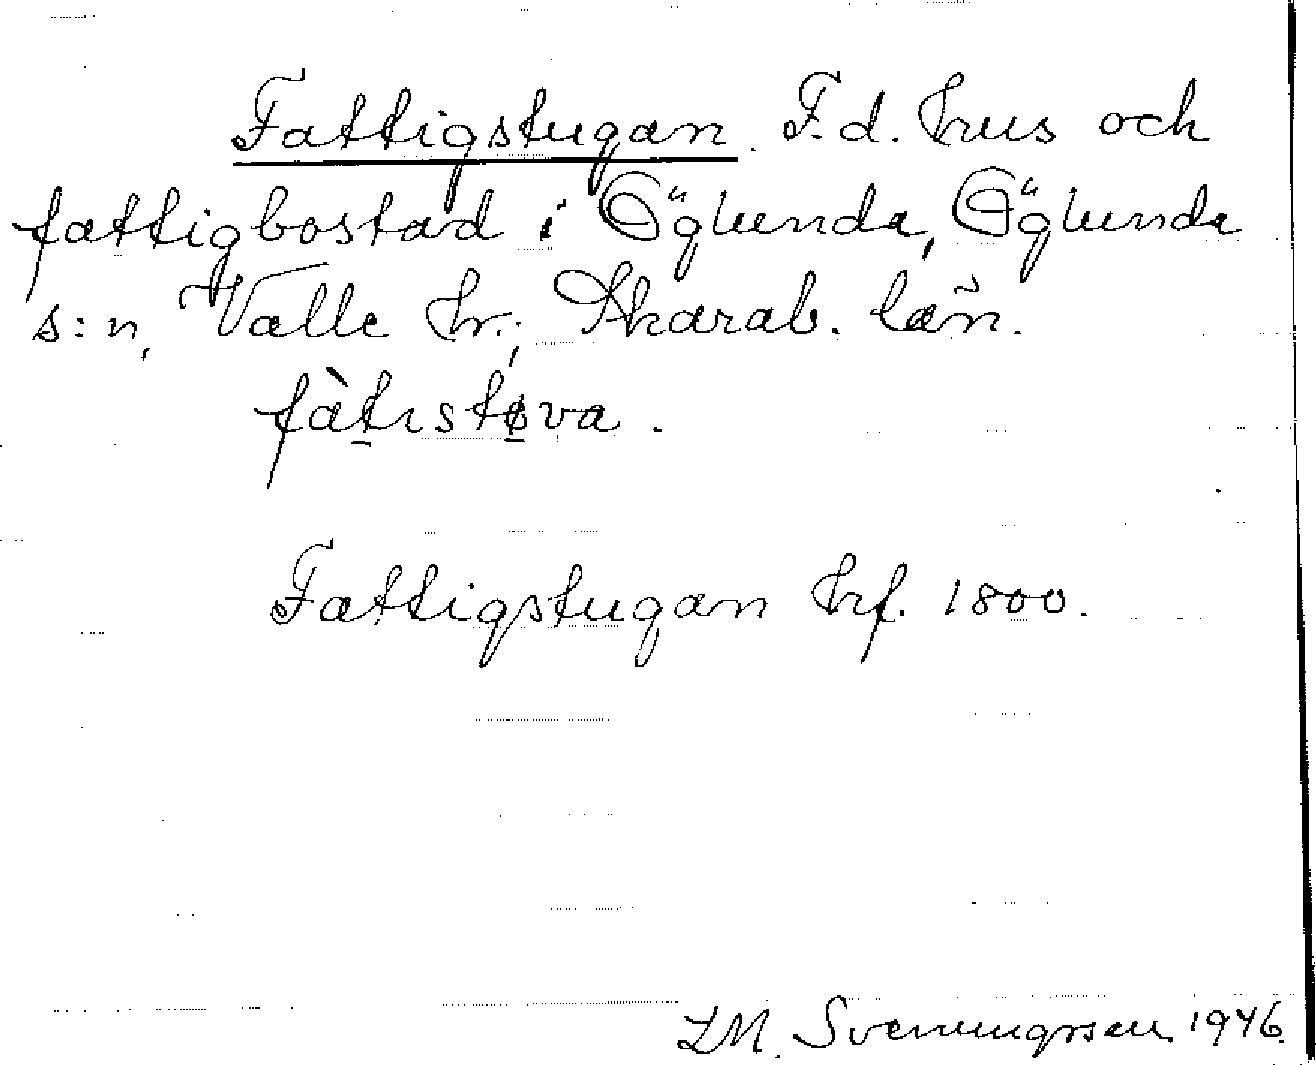 Fattigstugan. F.d. hus och
fattigbostad i Öglunda, Öglunda
s:n, Valle hr., Skarab. län.
Fattigstugan hrf. 1800.
Svenungsson 1946